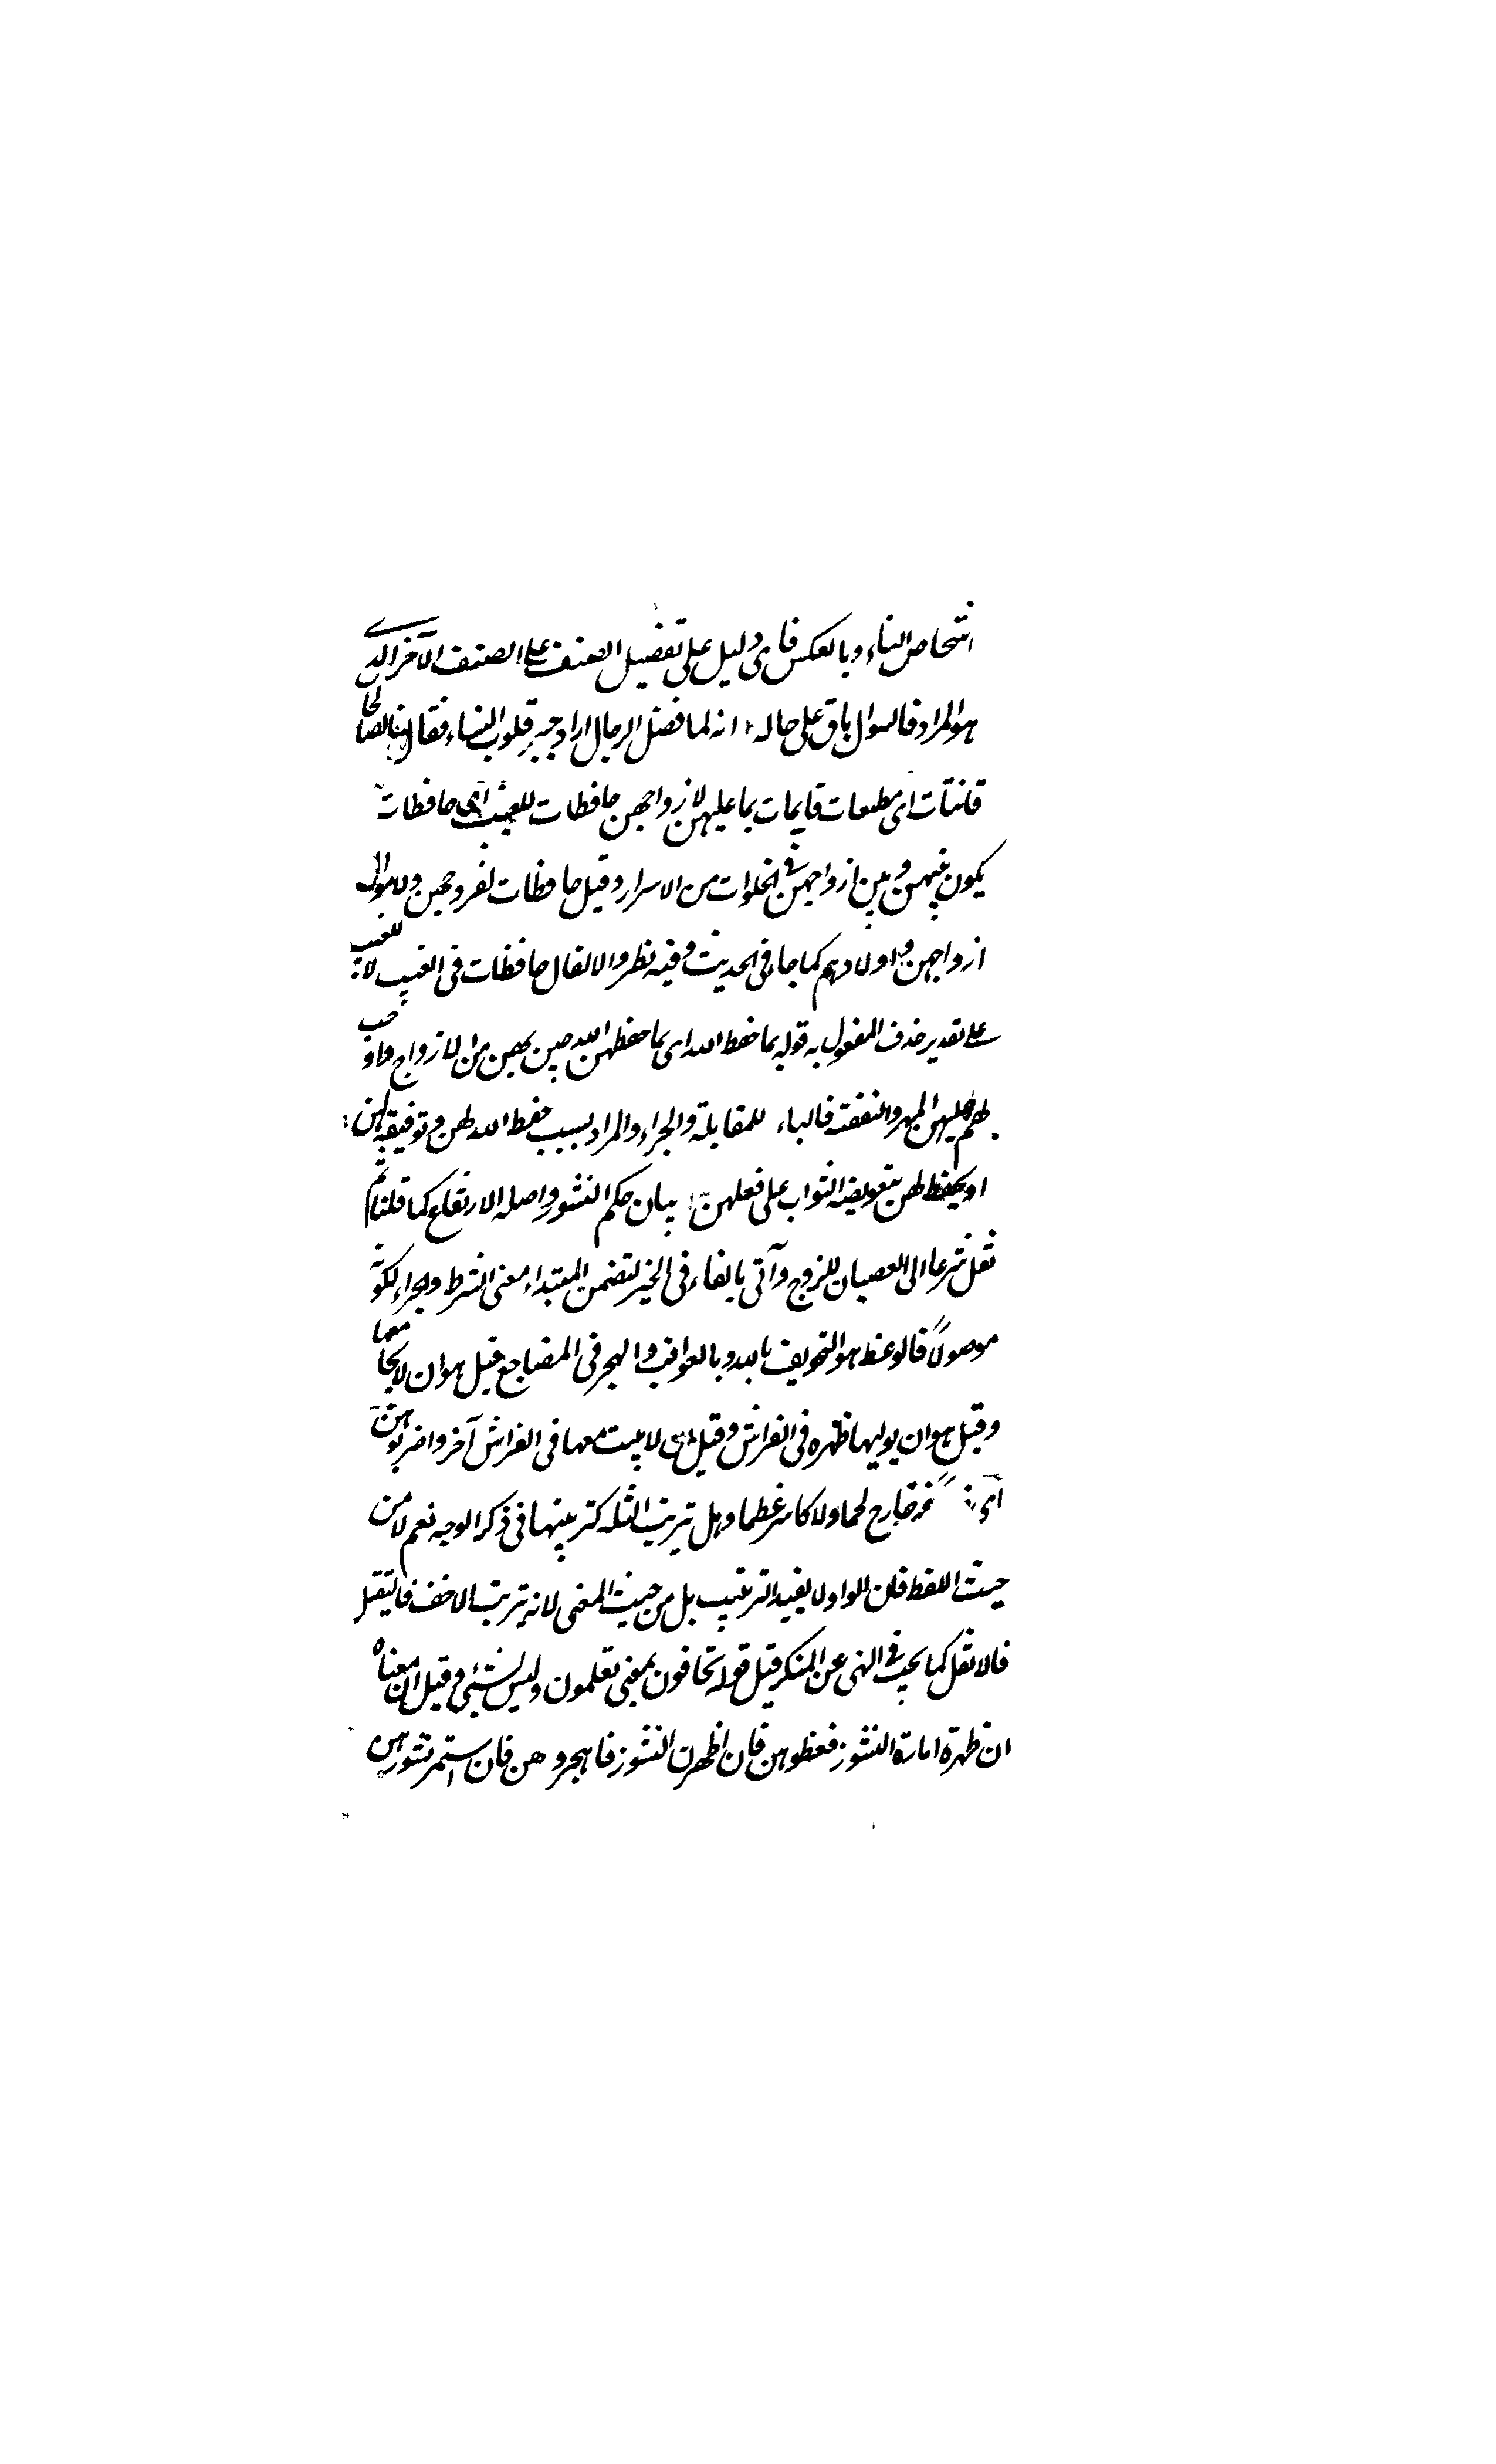 اشخاص النساء وبالعكس فاى دليل على تفضيل الصنف على الصنف الآخر الذى
هو المراد فالسوال باق على حاله انه لما فضل الرجال اراد جبر قلوب النساء فقال فالصالحا
قانتات اى مطيعات قايمات بما عليهن لازواجهن حافظات للغيب اى حافظات
يكون بينهن وبين ازواجهن فى الخلوات من الاسرار وقيل حافظات لفروجهن ولاموال
ازواجهن واولادهم كما جاء فى الحديث وفيه نظر والا لقال حافظات فى الغيب لا للغيب
على تقدير حذف المفعول به قوله بما حفظ الله اى بما حفظهن الله حين بهن من الازواج واوجب
لهم عليهن المهر والنفقة فالباء للمقابلة والجزاء والمراد بسبب حفظ الله لهن وتوفيقه لهن
او بحفظ لهن بتعويضه الثواب على فعلهن بيان حكم النشوز واصله الارتفاع كما قلنا ثم
نقل شرعا الى العصيان للزوج وآتى بالفاء فى الخبر لتضمن المبتداء معنى الشرط والجزاء لكونه
موصولاً فالوعظ هو التخويف بالله وبالعواقب والهجر فى المضاجع قيل هو ان لا يجا معها
وقيل هو ان يوليها ظهره فى الفراش وقيل اى لا يبيت معها فى الفراش آخر واضربوهن
اى جارح لحما ولا كاسر عظما وهل ترتيب الثلثه كترتيبها فى ذكر الوجه نعم لا من
حيث اللفظ فان الواو لا يفيد الترتيب بل من حيث المعنى لانه ترتيب الاخف فالثقيل
فالاثقل كما يجب فى النهى عن المنكر قيل قوله تخافون بمعنى تعلمون وليس بشئ وقيل ان معناه
ان ظهرة امارة النشوز فعظوهن فان اظهرن النشوز فاهجروهن فان استمر نشوزهن